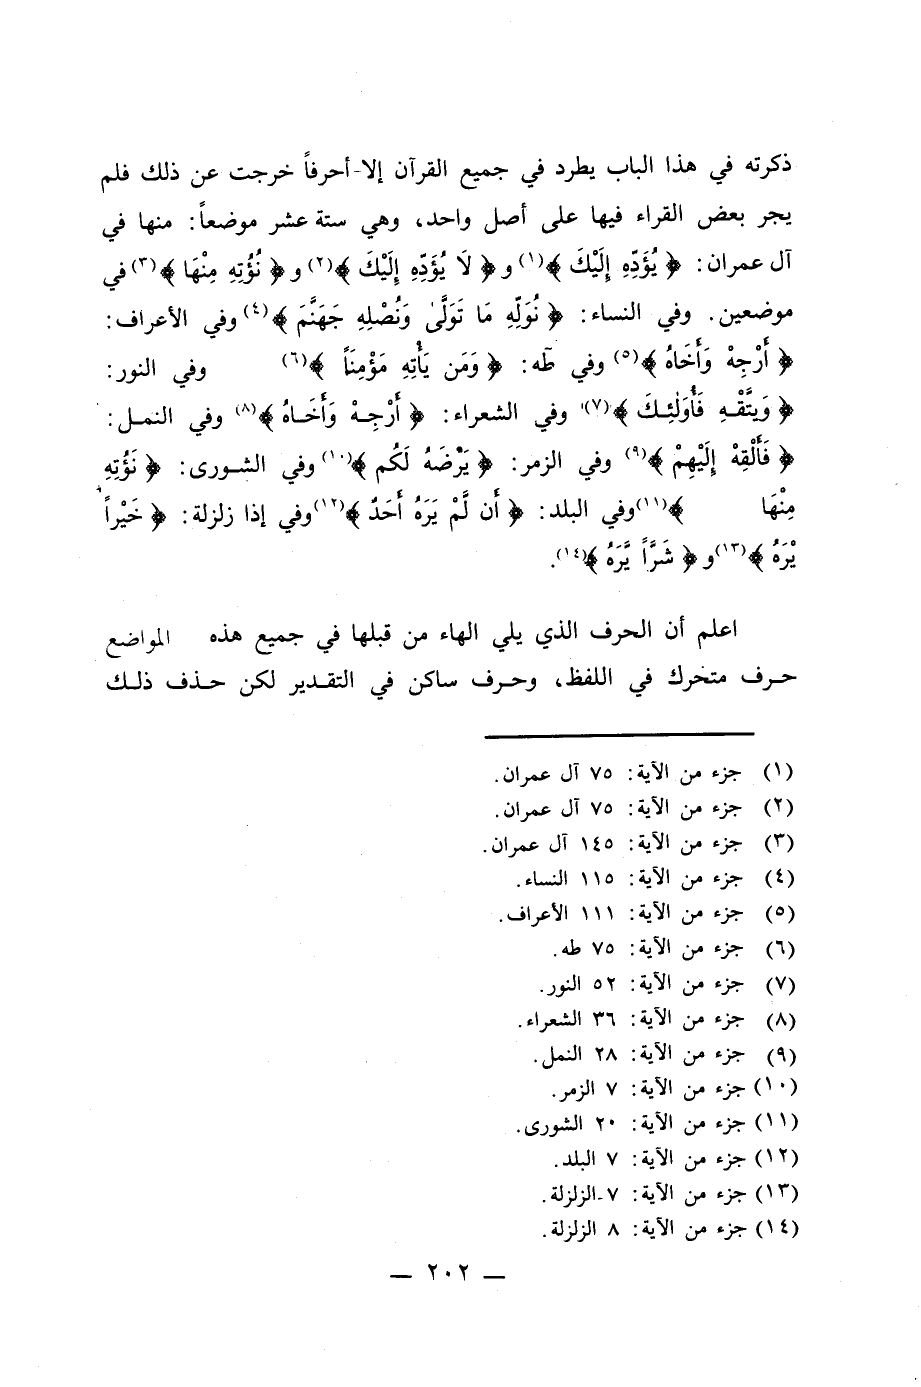 ذكرته في هذا الباب يطرد في جميع القرآن إلا-أحرفاً خرجت عن ذلك فلم
يجر بعض القراء فيها على أصل واحد، وهي ستة عشر موضعاً: منها في
آل عمران: ﴿ يُؤَدِّهِ إِلَيْكَ ﴾(١) و﴿ لَا يُؤَدِّهِ إِلَيْكَ ﴾(٢) و﴿ نُؤْتِهِ مِنْهَا ﴾(٣) في
موضعين. وفي النساء: ﴿ نُوَلِّهِ مَا تَوَلَّىٰ وَنُصْلِهِ جَهَنَّمَ ﴾(٤) وفي الأعراف:
﴿ أَرْجِهْ وَأَخَاهُ ﴾(٥) وفي طه: ﴿ وَمَن يَأْتِهِ مُؤْمِنَاً ﴾(٦) وفي النور:
﴿ وَيَتَّقْهِ فَأُوْلَٰئِكَ ﴾(٧) وفي الشعراء: ﴿ أَرْجِهْ وَأَخَاهُ ﴾(٨) وفي النمل:
﴿ فَأَلْقِهْ إِلَيْهِمْ ﴾(٩) وفي الزمر: ﴿ يَرْضَهُ لَكُم ﴾(١٠) وفي الشورى: ﴿ نُؤْتِهِ
مِنْهَا ﴾(١١) وفي البلد: ﴿ أَن لَّمْ يَرَهُ أَحَدٌ ﴾(١٢) وفي إذا زلزلة: ﴿ خَيْراً
يَرَهُ ﴾(١٣) و﴿ شَرَّاً يَّرَهُ ﴾(١٤).
اعلم أن الحرف الذي يلي الهاء من قبلها في جميع هذه المواضع
حرف متحرك في اللفظ، وحرف ساكن في التقدير لكن حذف ذلك
(١) جزء من الآية: ٧٥ آل عمران.
(٢) جزء من الآية: ٧٥ آل عمران.
(٣) جزء من الآية: ١٤٥ آل عمران.
(٤) جزء من الآية: ١١٥ النساء.
(٥) جزء من الآية: ١١١ الأعراف.
(٦) جزء من الآية: ٧٥ طه.
(٧) جزء من الآية: ٥٢ النور.
(٨) جزء من الآية: ٣٦ الشعراء.
(٩) جزء من الآية: ٢٨ النمل.
(١٠) جزء من الآية: ٧ الزمر.
(١١) جزء من الآية: ٢٠ الشورى.
(١٢) جزء من الآية: ٧ البلد.
(١٣) جزء من الآية: ٧-الزلزلة.
(١٤) جزء من الآية: ٨ الزلزلة.
— ٢٠٢ —